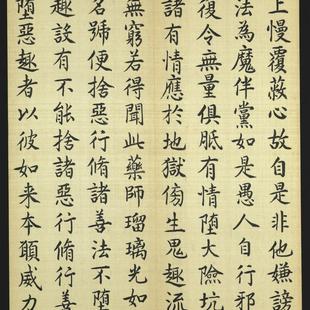 上慢覆蔽心故自是非他嫌謗
法為魔伴黨如是愚人自行邪
復令無量俱胝有情墮大險坑
諸有情應於地獄傍生鬼趣流
無窮若得聞此藥師瑠璃光如
名號便捨惡行脩諸善法不墮
趣設有不能捨諸惡行脩行善
墮惡趣者以彼如来本願威力